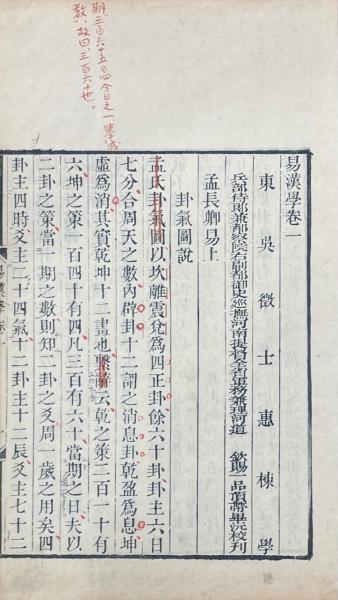 期三百六十五日四分日之一、舉成
数、故曰、三百六十也。
易漢學卷一
東吳徵士惠棟學
兵部侍郎兼都察院右副都御史巡撫河南提督全省軍務兼理河道 欽賜一品頂帶畢沅校刊
孟長卿易上
卦氣圖說
孟氏卦氣圖以坎離震兌爲四正卦餘六十卦卦主六日
七分合周天之數內辟卦十二謂之消息卦乾盈爲息坤
虛爲消其實乾坤十二畫也繫辭云乾之策二百一十有
六坤之策一百四十有四凡三百有六十當期之日夫以
二卦之策當一期之數則知二卦之爻周一歲之用矣四
卦主四時爻主二十四氣十二卦主十二辰爻主七十二